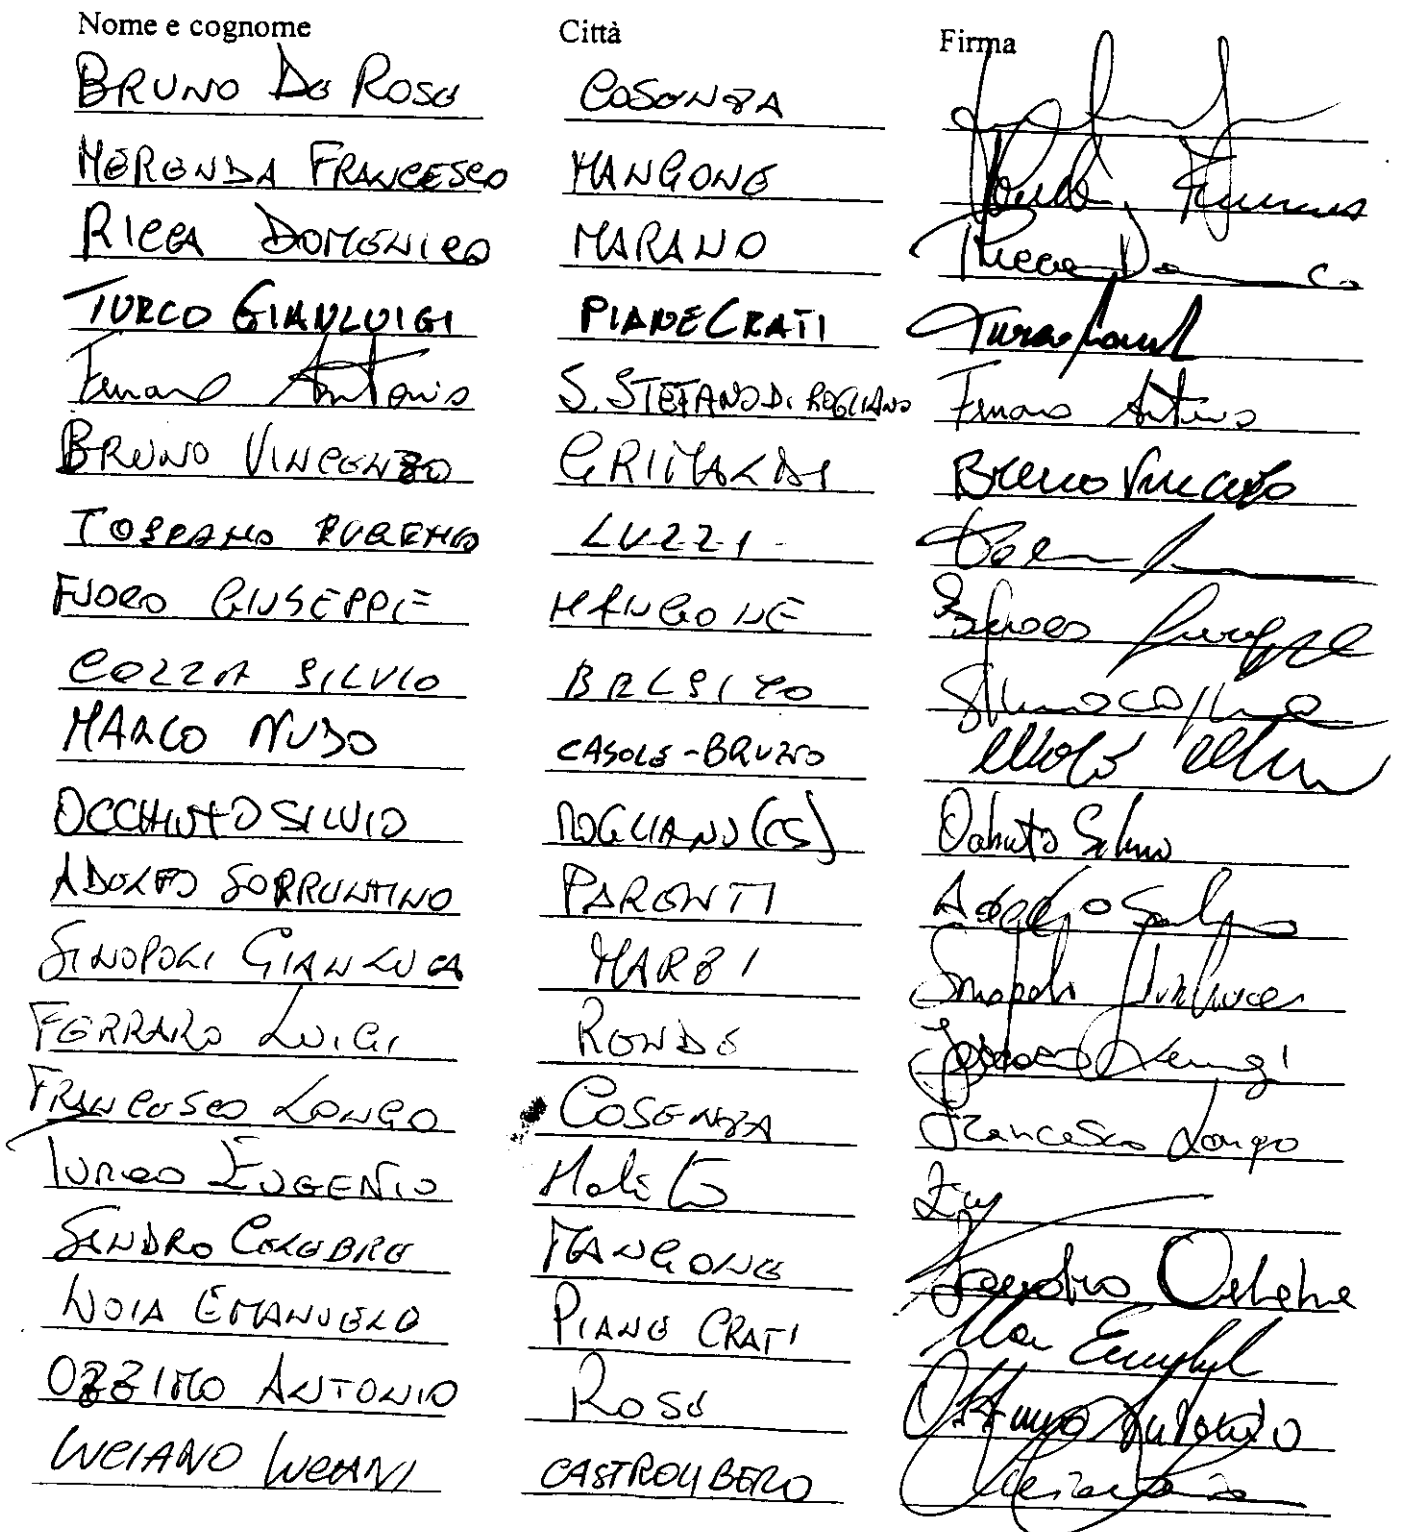 Nome e cognome Città Firma
BRUNO DE ROSE COSENZA
MERENDA FRANCESCO MANGONE
RICCA DOMENICO MARANO Ricca
TURCO GIANLUIGI PIANE CRATI Turco
Antonio S. STEFANO DI ROGLIANO
BRUNO VINCENZO GRIMALDI Bruno Vincenzo
TOSCANO EUGENIO LUZZI
FUOCO GIUSEPPE MANGONE
COZZA SILVIO BELSITO
MARCO NUDO CASOLE-BRUZIO
OCCHIUTO SILVIO ROGLIANO (CS) Occhiuto Silvio
ADOLFO SORRENTINO PARENTI Adolfo
SINOPOLI GIANLUCA MARZI Sinopoli Gianluca
FERRARO LUIGI RENDE Luigi
FRANCESCO LONGO COSENZA Francesco Longo
TURCO EUGENIO
SANDRO CELEBRE MANGONE Sandro Celebre
NOIA EMANUELE PIANE CRATI
OZZIMO ANTONIO ROSE Antonio
LUCIANO LUCIANI CASTROLIBERO